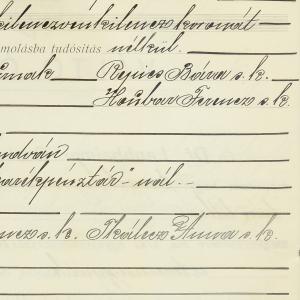 kilenczvenkilencz koronát
molásba tudósítás nélkül.
Repics Bára s. k.
Houbar Ferencz s. k.
ndván
arékpénztár"-nál.
ncz s. k. Tkálecz Anna s. k.